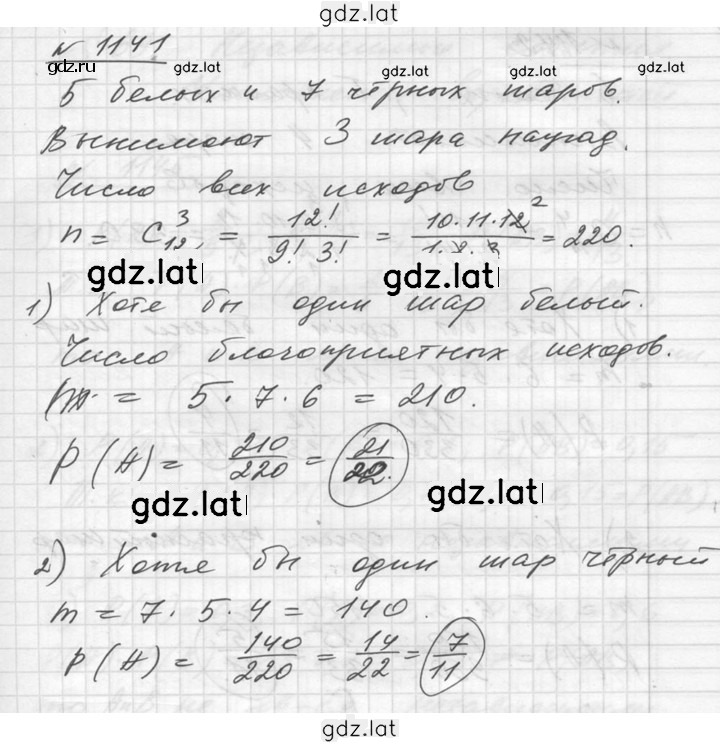 gdz.lat
№ 1141
gdz.ru gdz.lat gdz.lat gdz.lat
5 белых и 7 чёрных шаров.
Вынимают 3 шара наугад.
Число всех исходов
n = C₁₂³, = 12! / 9! 3! = 10·11·12² / 1·2·3 = 220.
gdz.lat gdz.lat
1) Хотя бы один шар белый.
Число благоприятных исходов.
m = 5·7·6 = 210.
P(A) = 210/220 = 21/22.
gdz.lat gdz.lat
2) Хотя бы один шар чёрный
m = 7·5·4 = 140.
P(A) = 140/220 = 14/22 = 7/11
gdz.lat